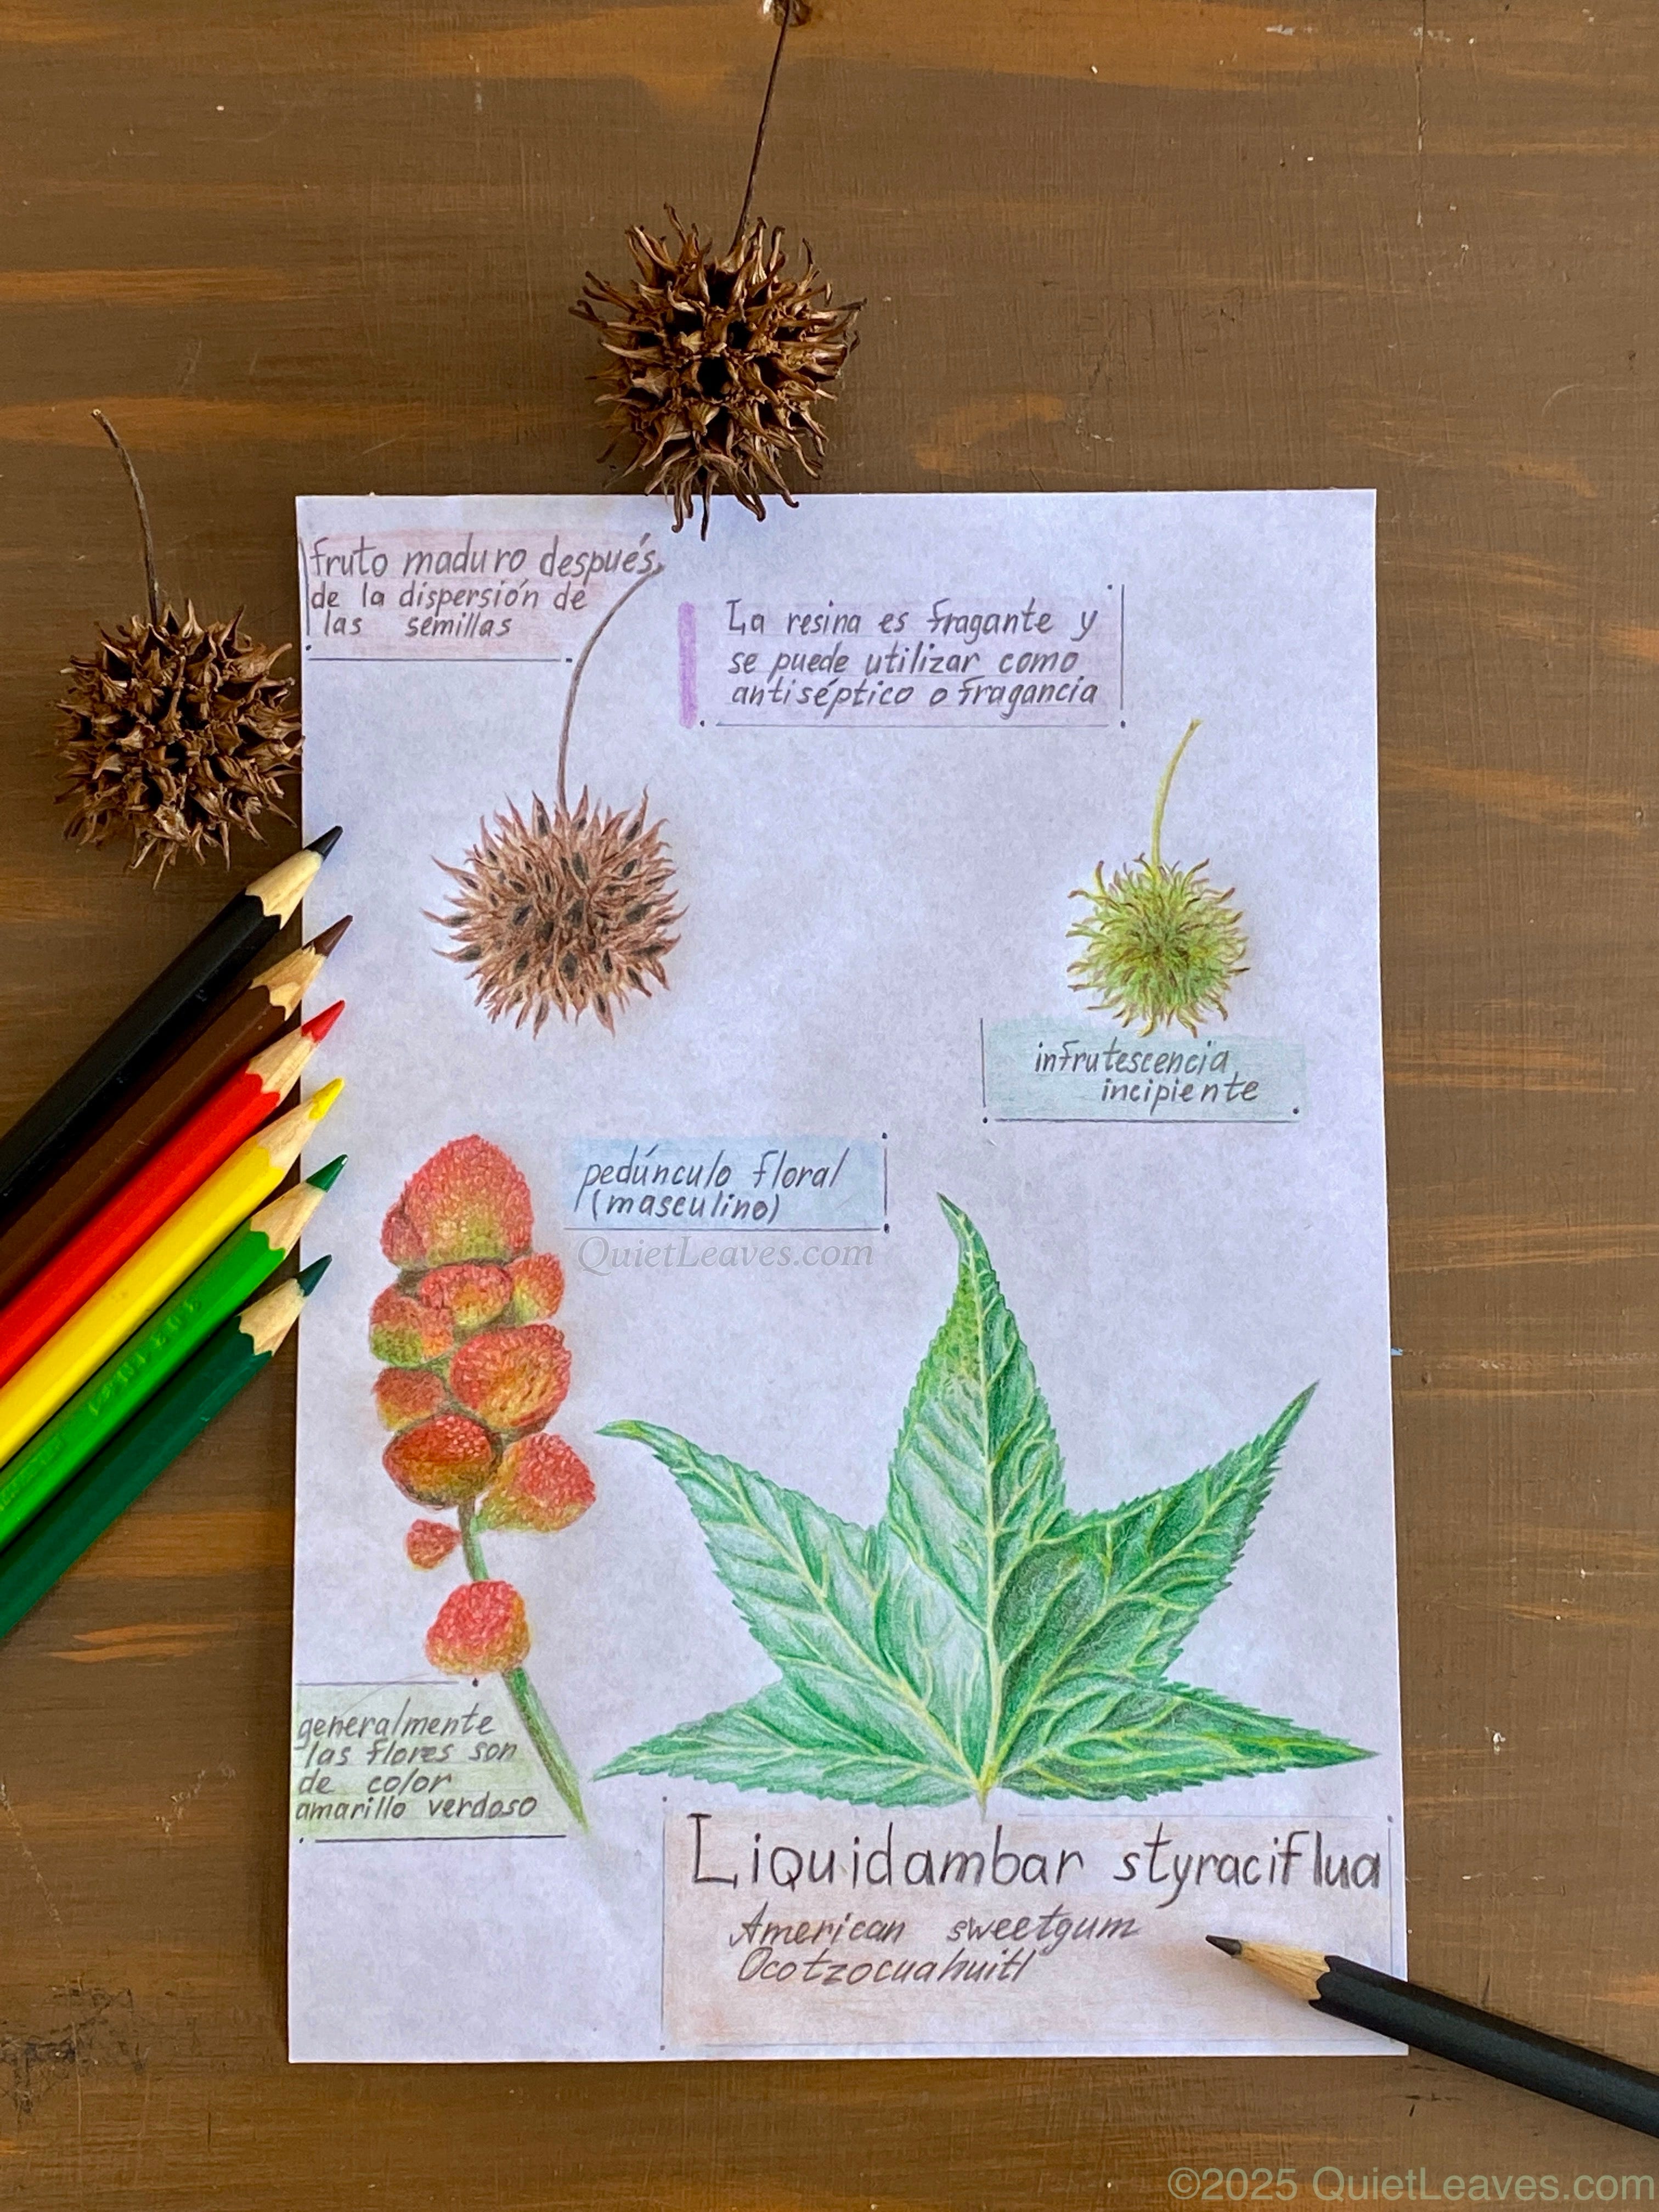 fruto maduro después
de la dispersión de
las semillas
La resina es fragante y
se puede utilizar como
antiséptico o fragancia
infrutescencia
incipiente
pedúnculo floral
(masculino)
QuietLeaves.com
generalmente
las flores son
de color
amarillo verdoso
Liquidambar styraciflua
American sweetgum
Ocotzocuahuitl
©2025 QuietLeaves.com